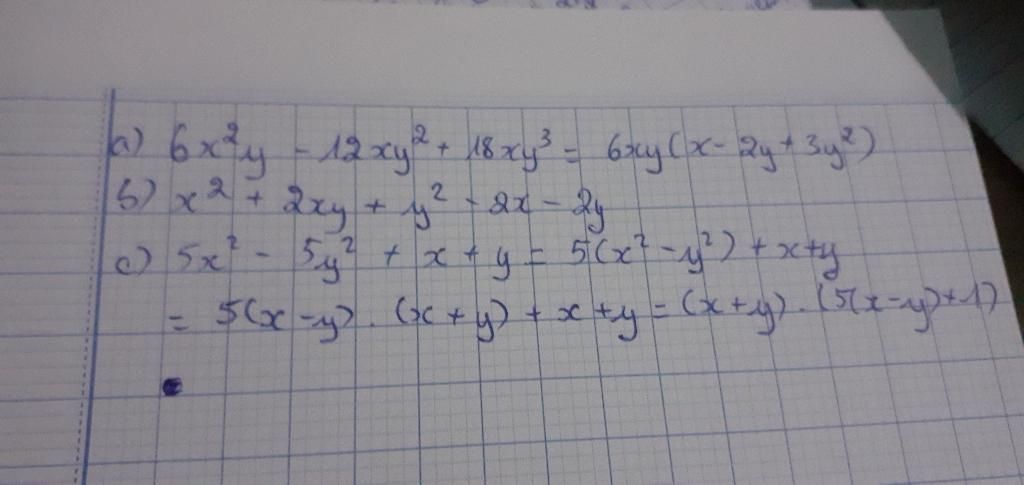 a) 6x²y - 12xy² + 18xy³ = 6xy(x - 2y + 3y²)
b) x² + 2xy + y² - 2x - 2y
c) 5x² - 5y² + x + y = 5(x² - y²) + x + y
= 5(x - y) . (x + y) + x + y = (x + y) . (5(x - y) + 1)